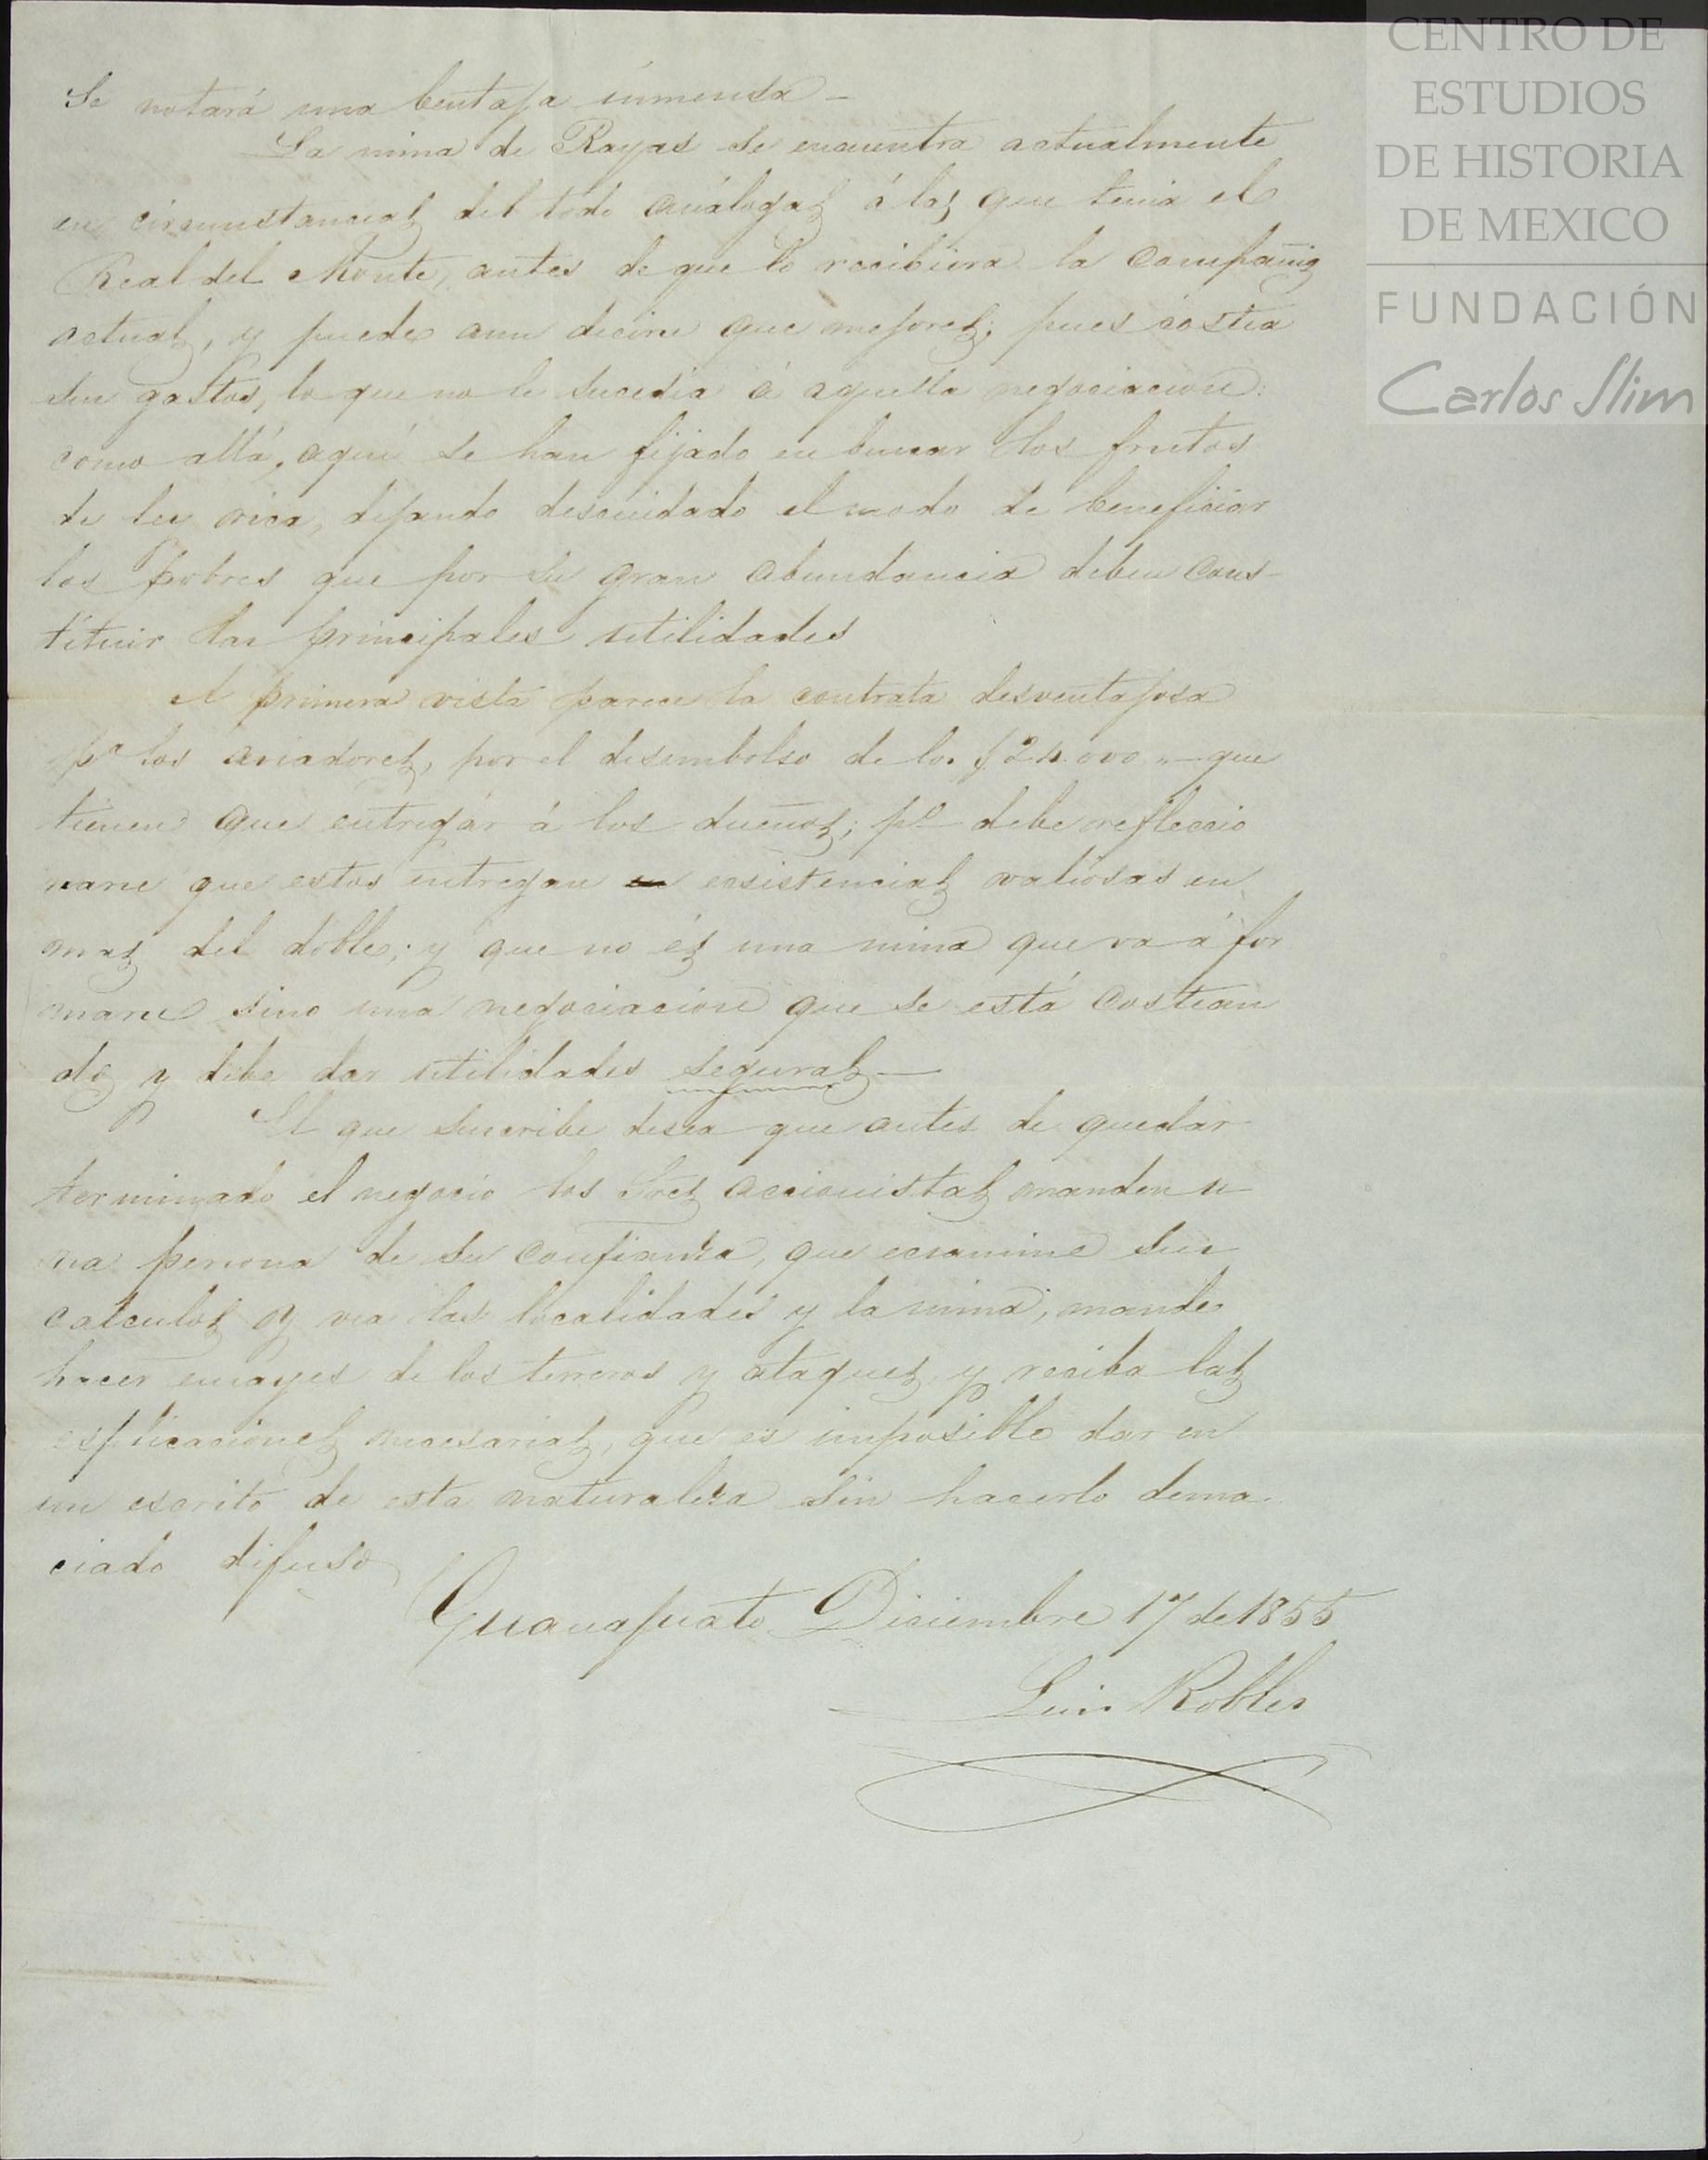 CENTRO DE
ESTUDIOS
DE HISTORIA
DE MEXICO
FUNDACIÓN
Carlos Slim
Se notará una bentaja inmensa —
La mina de Rayas se encuentra actualmente
en circunstancias del todo análogas á las que tenia el
Real del Monte, antes de que lo recibiera la Compañia
actual, y puede aun decirse que mejores; pues costea
sus gastos, lo que no le sucedia á aquella negociacion:
como allá, aqui se han fijado en buscar los frutos
de ley rica, dejando descuidado el modo de beneficiar
los pobres que por su gran abundancia deben cons-
tituir las principales utilidades
A primera vista parece la contrata desventajosa
pa los aviadores, por el desembolso de los $24.000 „— que
tienen que entregár á los dueños; po debe refleccio
narse que estos entregan ecsistencias valiosas en
mas del doble; y que no és una mina que va á for
marse sino una negociacion que se está costean
do, y debe dar utilidades seguras —
El que suscribe desea que antes de quedar
terminado el negocio los Sres accionistas manden u
na persona de su confianza, que ecsamine sus
calculos y vea las localidades y la mina, mande
hacer ensayes de los terreros y ataques, y reciba las
esplicaciones necesarias, que es imposible dar en
un escrito de esta naturaleza sin hacerlo dema
ciado difuso
Guanajuato Diciembre 17 de 1855
Luis Robles